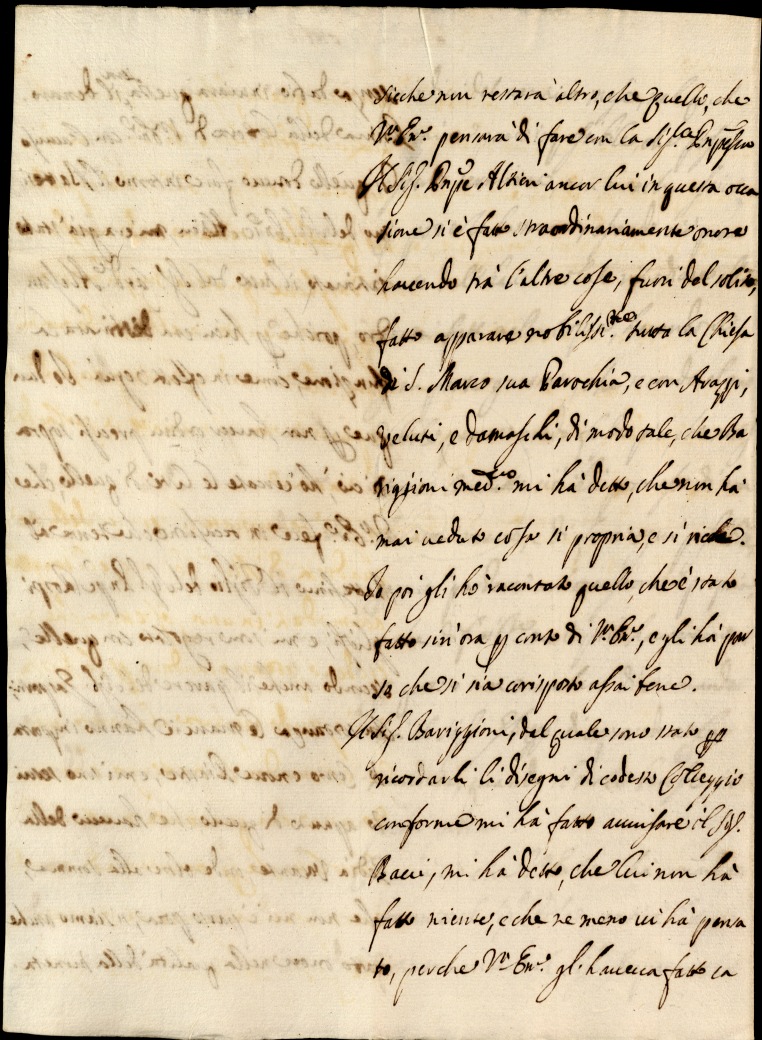 sicche non restarà altro, che quello, che
V.ª Em.ª pensarà di fare con la Sig.ra Prñpessa
Il Sig. Prñpe Altieri ancor lui in questa occa
sione si è fatto straordinariamente onore
havendo trà l'altre cose, fuori del solito,
fatto apparare nobilissi.te tutta la Chiesa
di S. Marco sua Parochia, e con Arazzi,
Veluti, e damaschi, di modo tale, che Ba
riggioni med.mo mi hà detto, che non hà
mai veduto cosa sì propria, e sì ricca.
Io poi gli hò racontato quello, che è stato
fatto sin'ora p conto di V.ª Em.ª, e gli hà par
so che si sia corisposto assai bene.
Il Sig. Bariggioni, dal quale sono stato pp
ricordarli li disegni di codesto Colleggio
conforme mi hà fatto avvisare il Sig.
Bacci, mi hà detto, che lui non hà
fatto niente, e che ne meno vi hà pensa
to, perche V.ª Em.ª gl'haveva fatto ca